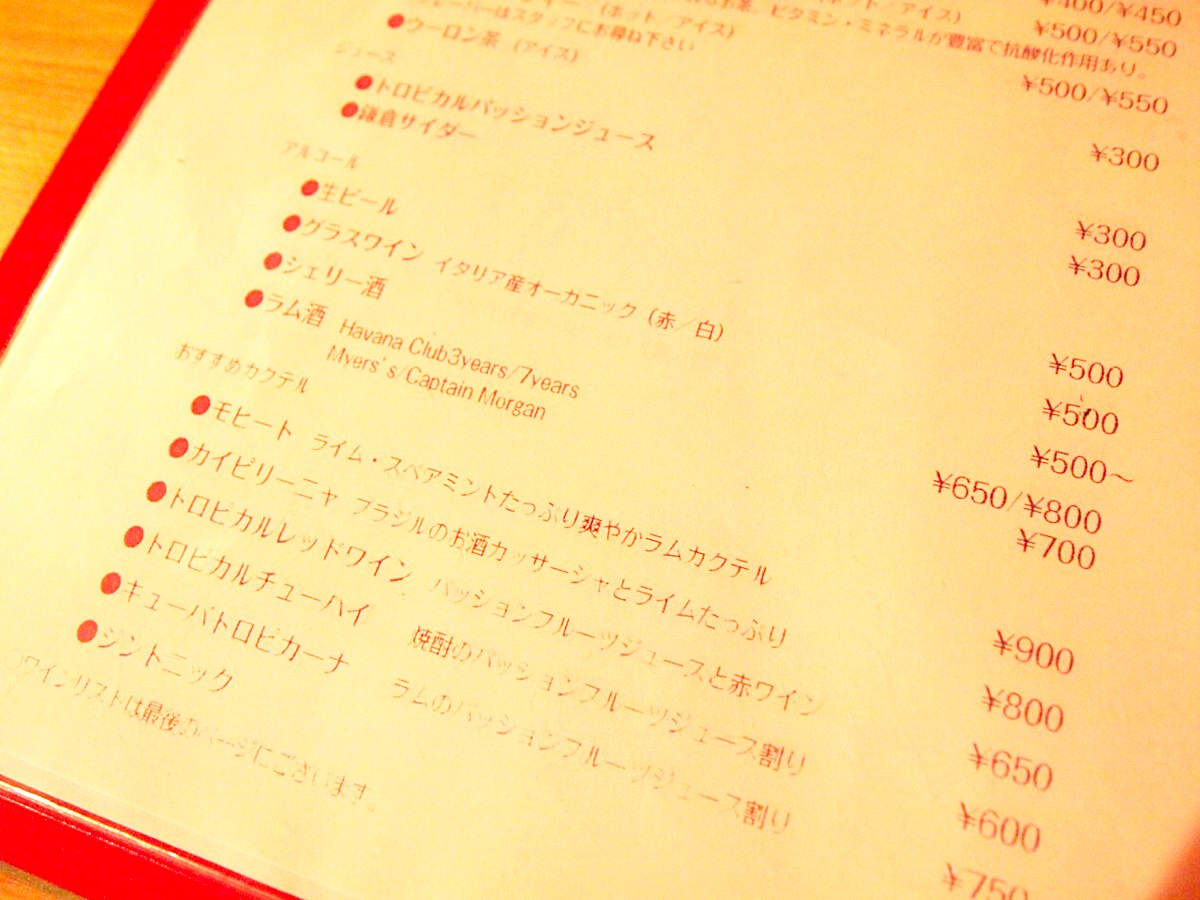 ¥400/¥450
ット／アイス） ¥500/¥550
お茶、ビタミン・ミネラルが豊富で抗酸化作用あり。
ー （ホット／アイス） ¥500/¥550
フレーバーはスタッフにお尋ね下さい
●ウーロン茶 （アイス） ¥300
ジュース
●トロピカルパッションジュース ¥300
●鎌倉サイダー ¥300
アルコール
●生ビール ¥500
●グラスワイン イタリア産オーガニック（赤／白） ¥500
●シェリー酒 ¥500～
●ラム酒 Havana Club3years/7years ¥650/¥800
Myers's/Captain Morgan ¥700
おすすめカクテル
●モヒート ライム・スペアミントたっぷり爽やかラムカクテル ¥900
●カイピリーニャ ブラジルのお酒カッサーシャとライムたっぷり ¥800
●トロピカルレッドワイン パッションフルーツジュースと赤ワイン ¥650
●トロピカルチューハイ 焼酎のパッションフルーツジュース割り ¥600
●キューバトロピカーナ ラムのパッションフルーツジュース割り ¥750
●ジントニック
○ワインリストは最後のページにございます。